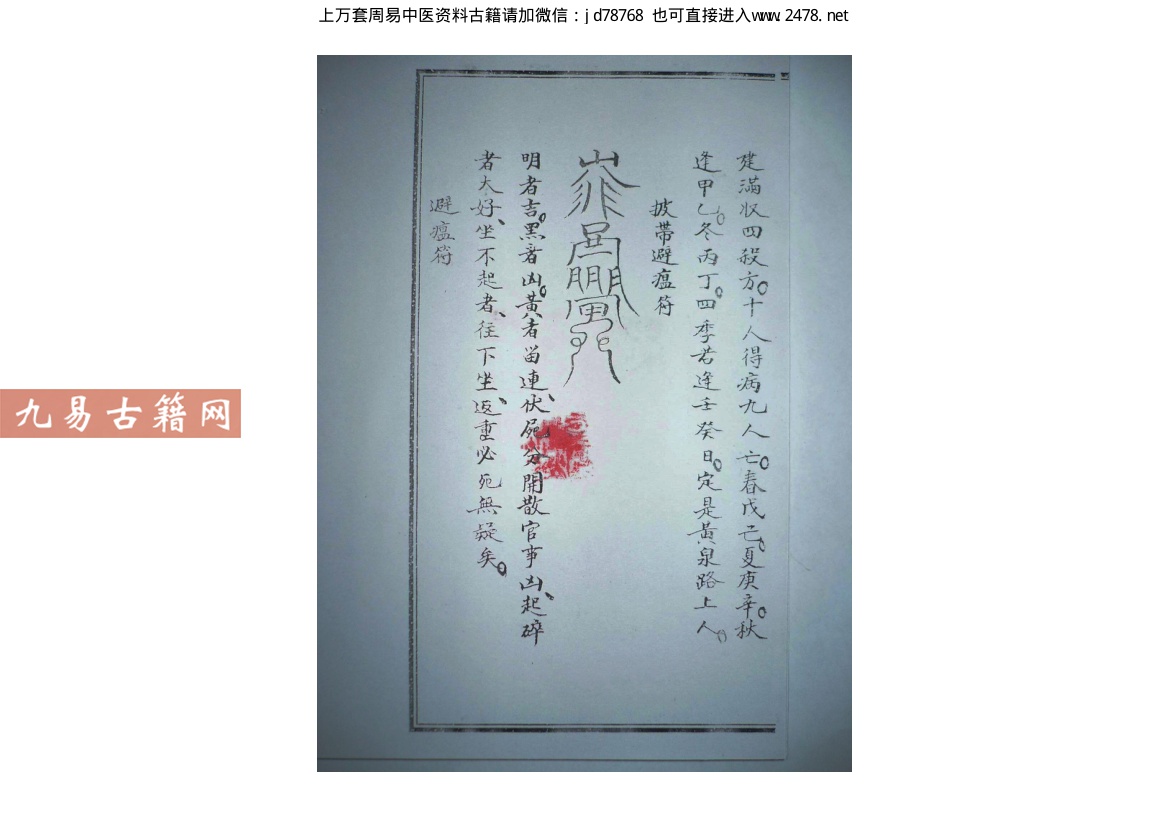 上万套周易中医资料古籍请加微信：jd78768 也可直接进入www.2478.net
建滿收四殺方。十人得病九人亡。春戊己。夏庚辛。秋
逢甲乙。冬丙丁。四季若逢壬癸日。定是黃泉路上人。
披带避瘟符
明者吉。黑者凶。黃者畄連、伏屍分開散官事凶、起碎
者大好、坐不起者、往下坐、返重必死無疑矣。
避瘟符
九易古籍网